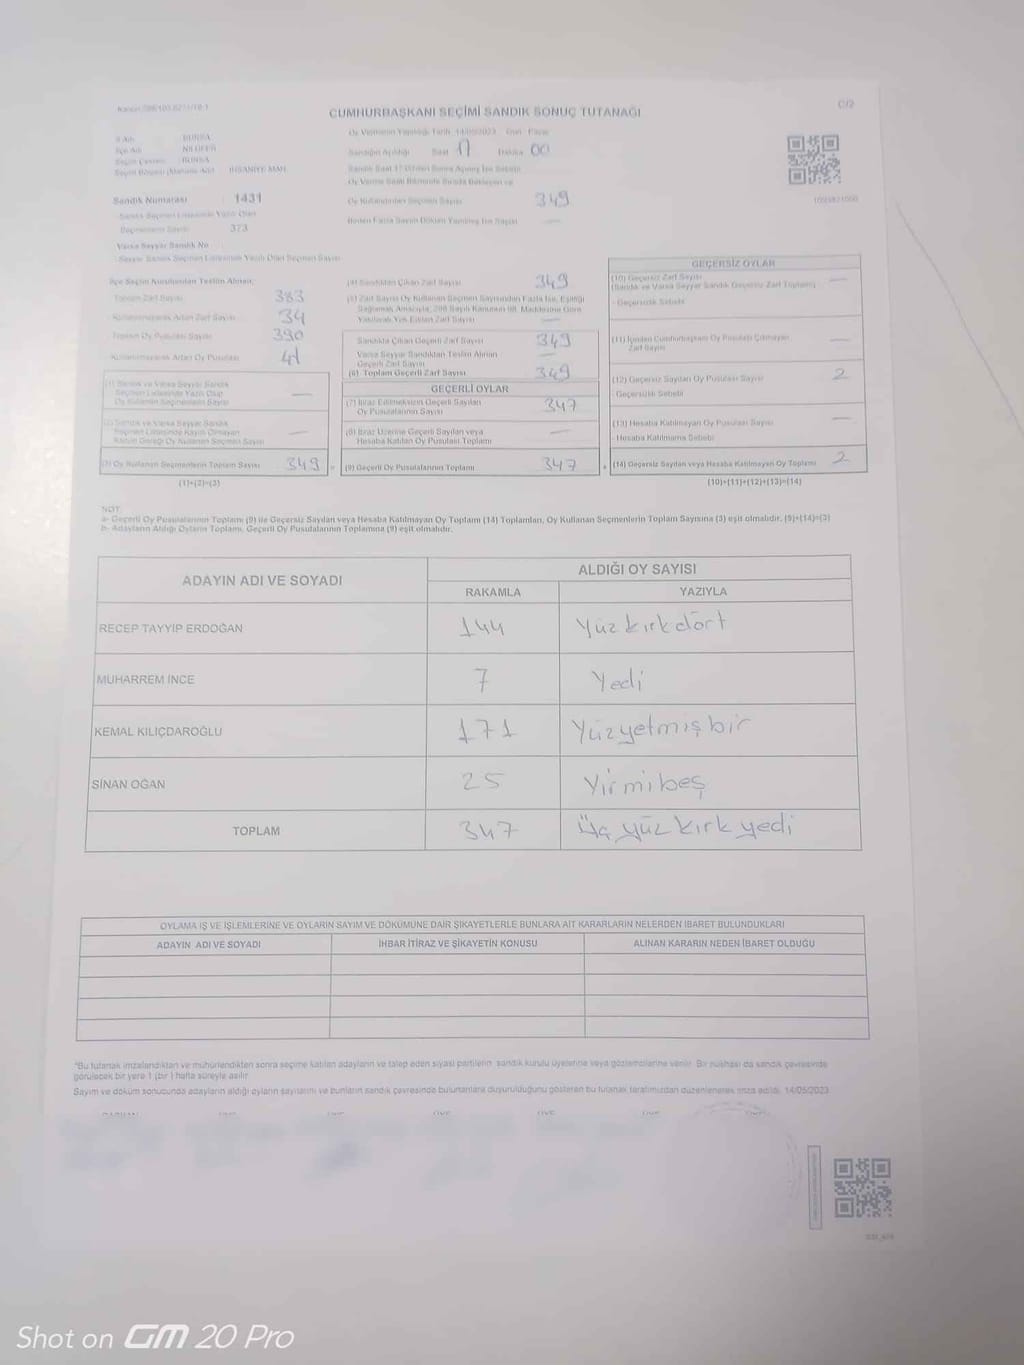 CUMHURBAŞKANI SEÇİMİ SANDIK SONUÇ TUTANAĞI
C/2
İl Adı BURSA
İlçe Adı NİLÜFER
Seçim Çevresi BURSA
Oy Vermenin Yapıldığı Tarih 14/05/2023 Gün Pazar
Sandığın Açıldığı Saat 17 Dakika 00
Sandık Numarası 1431
Sandık Seçmen Listesinde Yazılı Olan
Seçmenlerin Sayısı 373
Oy Kullandırılan Seçmen Sayısı 349
Varsa Seyyar Sandık No
Seyyar Sandık Seçmen Listesinde Yazılı Olan Seçmen Sayısı
İlçe Seçim Kurulundan Teslim Alınan;
Toplam Zarf Sayısı 383
Kullanılmayarak Artan Zarf Sayısı 34
Toplam Oy Pusulası Sayısı 390
Kullanılmayarak Artan Oy Pusulası 41
(1) Sandık ve Varsa Seyyar Sandık
Seçmen Listesinde Yazılı Olup
Oy Kullanan Seçmenlerin Sayısı —
(2) Sandık ve Varsa Seyyar Sandık
Seçmen Listesinde Kaydı Olmayan
Kanun Gereği Oy Kullanan Seçmen Sayısı —
(3) Oy Kullanan Seçmenlerin Toplam Sayısı 349
(1)+(2)=(3)
(4) Sandıktan Çıkan Zarf Sayısı 349
(5) Zarf Sayısı Oy Kullanan Seçmen Sayısından Fazla İse, Eşitliği
Sağlamak Amacıyla, 298 Sayılı Kanunun 98. Maddesine Göre
Yakılarak Yok Edilen Zarf Sayısı —
Sandıkta Çıkan Geçerli Zarf Sayısı 349
Varsa Seyyar Sandıktan Teslim Alınan
Geçerli Zarf Sayısı —
(6) Toplam Geçerli Zarf Sayısı 349
GEÇERLİ OYLAR
(7) İtiraz Edilmeksizin Geçerli Sayılan
Oy Pusulalarının Sayısı 347
(8) İtiraz Üzerine Geçerli Sayılan veya
Hesaba Katılan Oy Pusulası Toplamı —
(9) Geçerli Oy Pusulalarının Toplamı 347
GEÇERSİZ OYLAR
(10) Geçersiz Zarf Sayısı —
(Sandık ve Varsa Seyyar Sandık Geçersiz Zarf Toplamı)
- Geçersizlik Sebebi
(11) İçinden Cumhurbaşkanı Oy Pusulası Çıkmayan
Zarf Sayısı —
(12) Geçersiz Sayılan Oy Pusulası Sayısı 2
- Geçersizlik Sebebi
(13) Hesaba Katılmayan Oy Pusulası Sayısı —
- Hesaba Katılmama Sebebi
(14) Geçersiz Sayılan veya Hesaba Katılmayan Oy Toplamı 2
(10)+(11)+(12)+(13)=(14)
NOT:
a- Geçerli Oy Pusulalarının Toplamı (9) ile Geçersiz Sayılan veya Hesaba Katılmayan Oy Toplamı (14) Toplamları, Oy Kullanan Seçmenlerin Toplam Sayısına (3) eşit olmalıdır. (9)+(14)=(3)
b- Adayların Aldığı Oyların Toplamı, Geçerli Oy Pusulalarının Toplamına (9) eşit olmalıdır.
ADAYIN ADI VE SOYADI
ALDIĞI OY SAYISI
RAKAMLA YAZIYLA
RECEP TAYYİP ERDOĞAN 144 Yüz kırk dört
MUHARREM İNCE 7 Yedi
KEMAL KILIÇDAROĞLU 171 Yüzyetmişbir
SİNAN OĞAN 25 Yirmibeş
TOPLAM 347 Üç yüz kırk yedi
OYLAMA İŞ VE İŞLEMLERİNE VE OYLARIN SAYIM VE DÖKÜMÜNE DAİR ŞİKAYETLERLE BUNLARA AİT KARARLARIN NELERDEN İBARET BULUNDUKLARI
ADAYIN ADI VE SOYADI İHBAR İTİRAZ VE ŞİKAYETİN KONUSU ALINAN KARARIN NEDEN İBARET OLDUĞU
*Bu tutanak imzalandıktan ve mühürlendikten sonra seçime katılan adayların ve talep eden siyasi partilerin sandık kurulu üyelerine veya gözlemcilerine verilir. Bir nüshası da sandık çevresinde
görülecek bir yere 1 (bir) hafta süreyle asılır.
Sayım ve döküm sonucunda adayların aldığı oyların sayılarını ve bunların sandık çevresinde bulunanlara duyurulduğunu gösteren bu tutanak tarafımızdan düzenlenerek imza edildi. 14/05/2023
Shot on GM 20 Pro